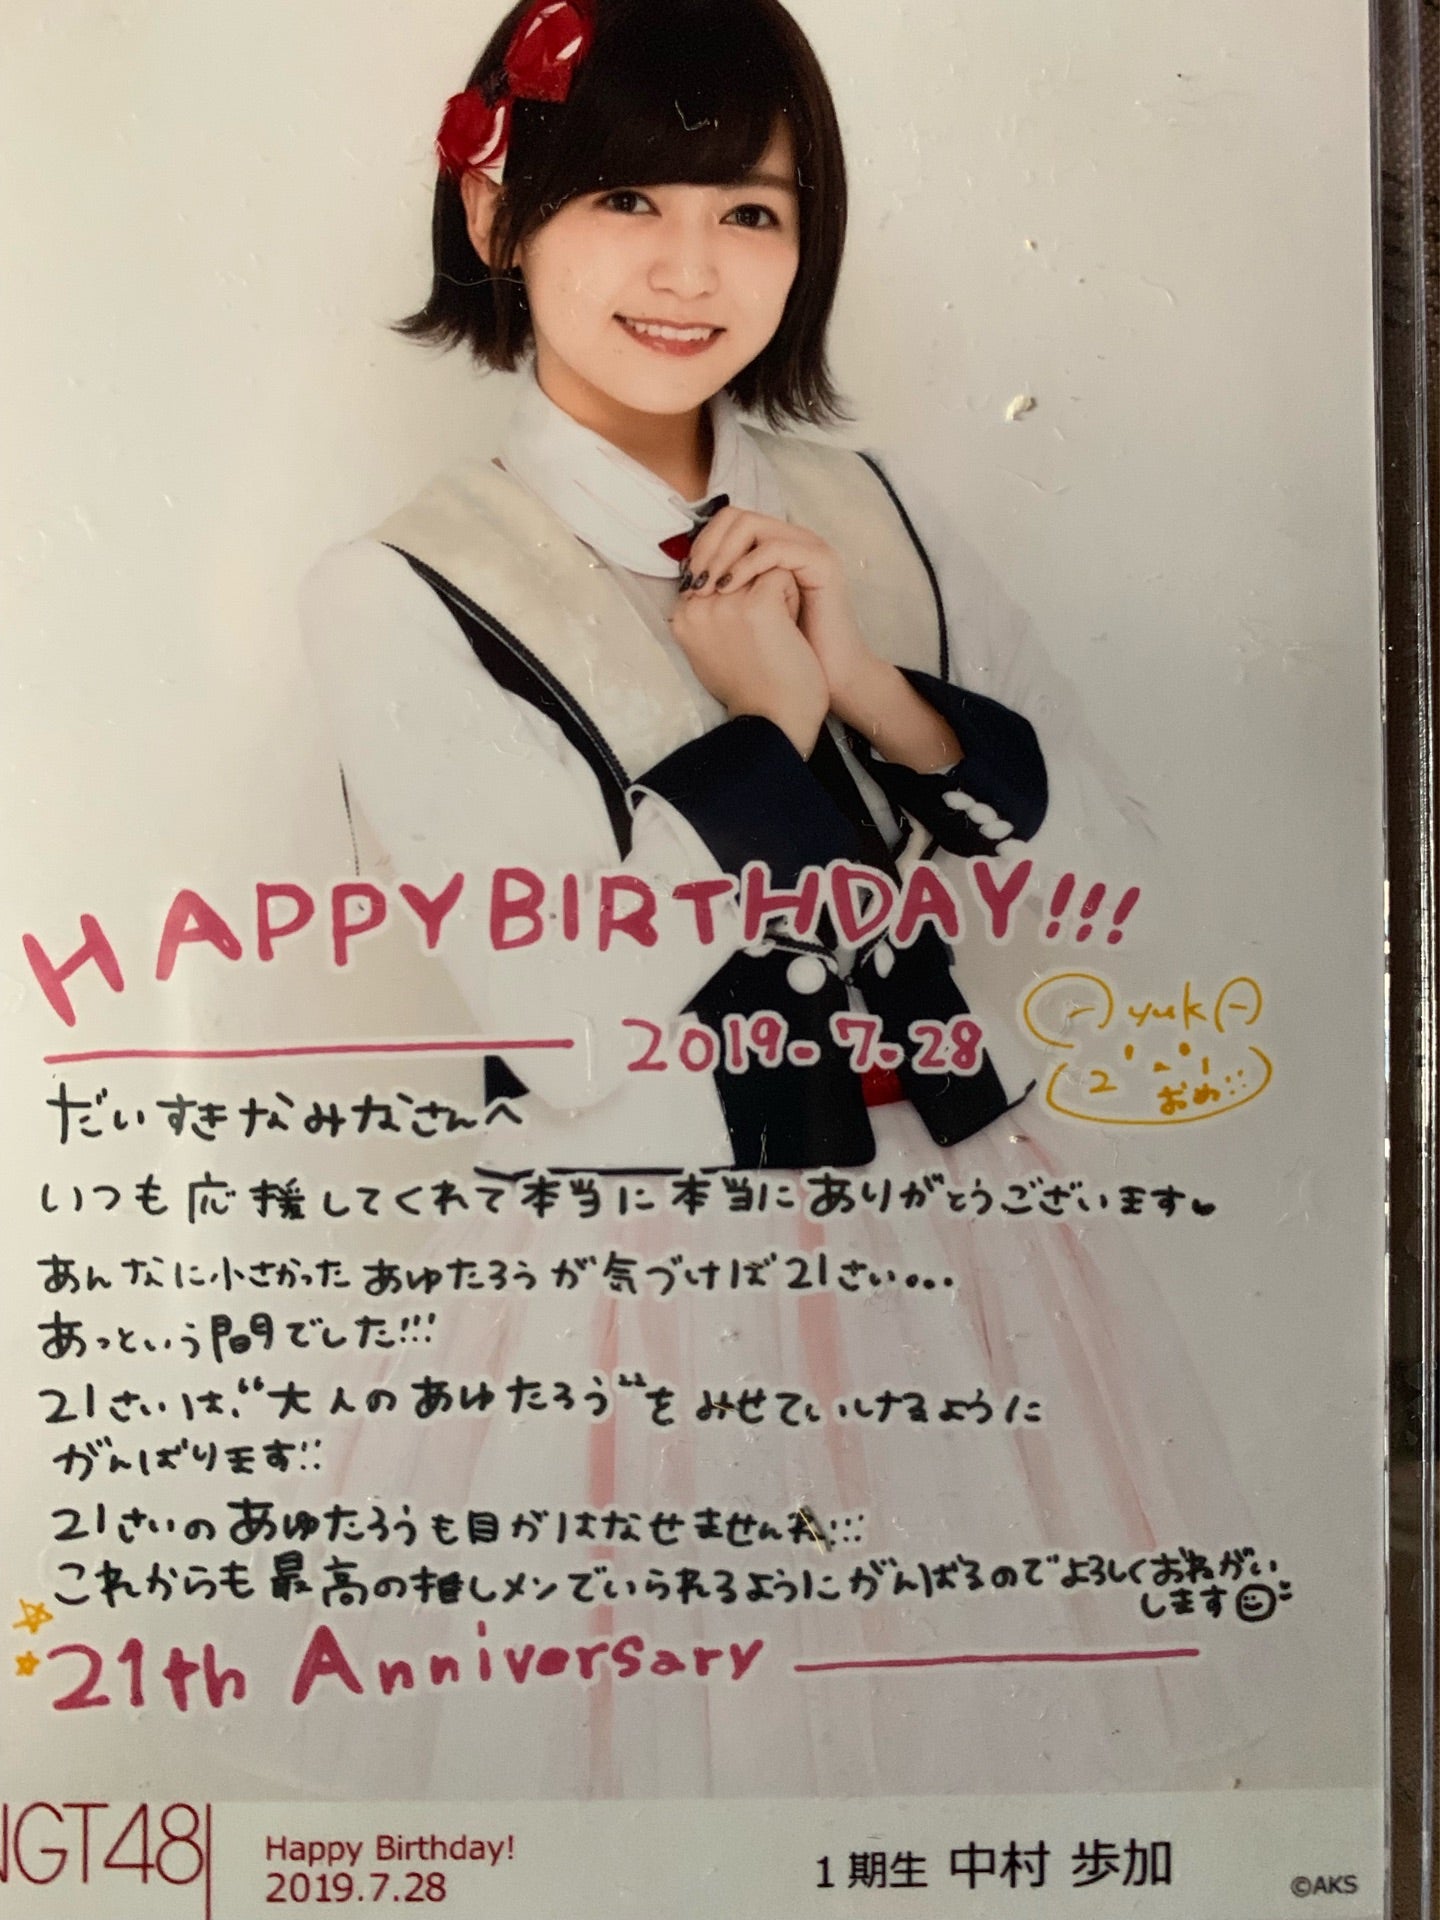 HAPPY BIRTHDAY!!!
2019.7.28
AyukA
21
おめ!!
だいすきなみなさんへ
いつも応援してくれて本当に本当にありがとうございます
あんなに小さかったあゆたろうが気づけば21さい...
あっという間でした!!!
21さいは、“大人のあゆたろう”をみせていけるように
がんばります!!
21さいのあゆたろうも目がはなせませんね!!!
これからも最高の推しメンでいられるようにがんばるのでよろしくおねがい
します
21th Anniversary
NGT48
Happy Birthday!
2019.7.28
1期生 中村 歩加
©AKS